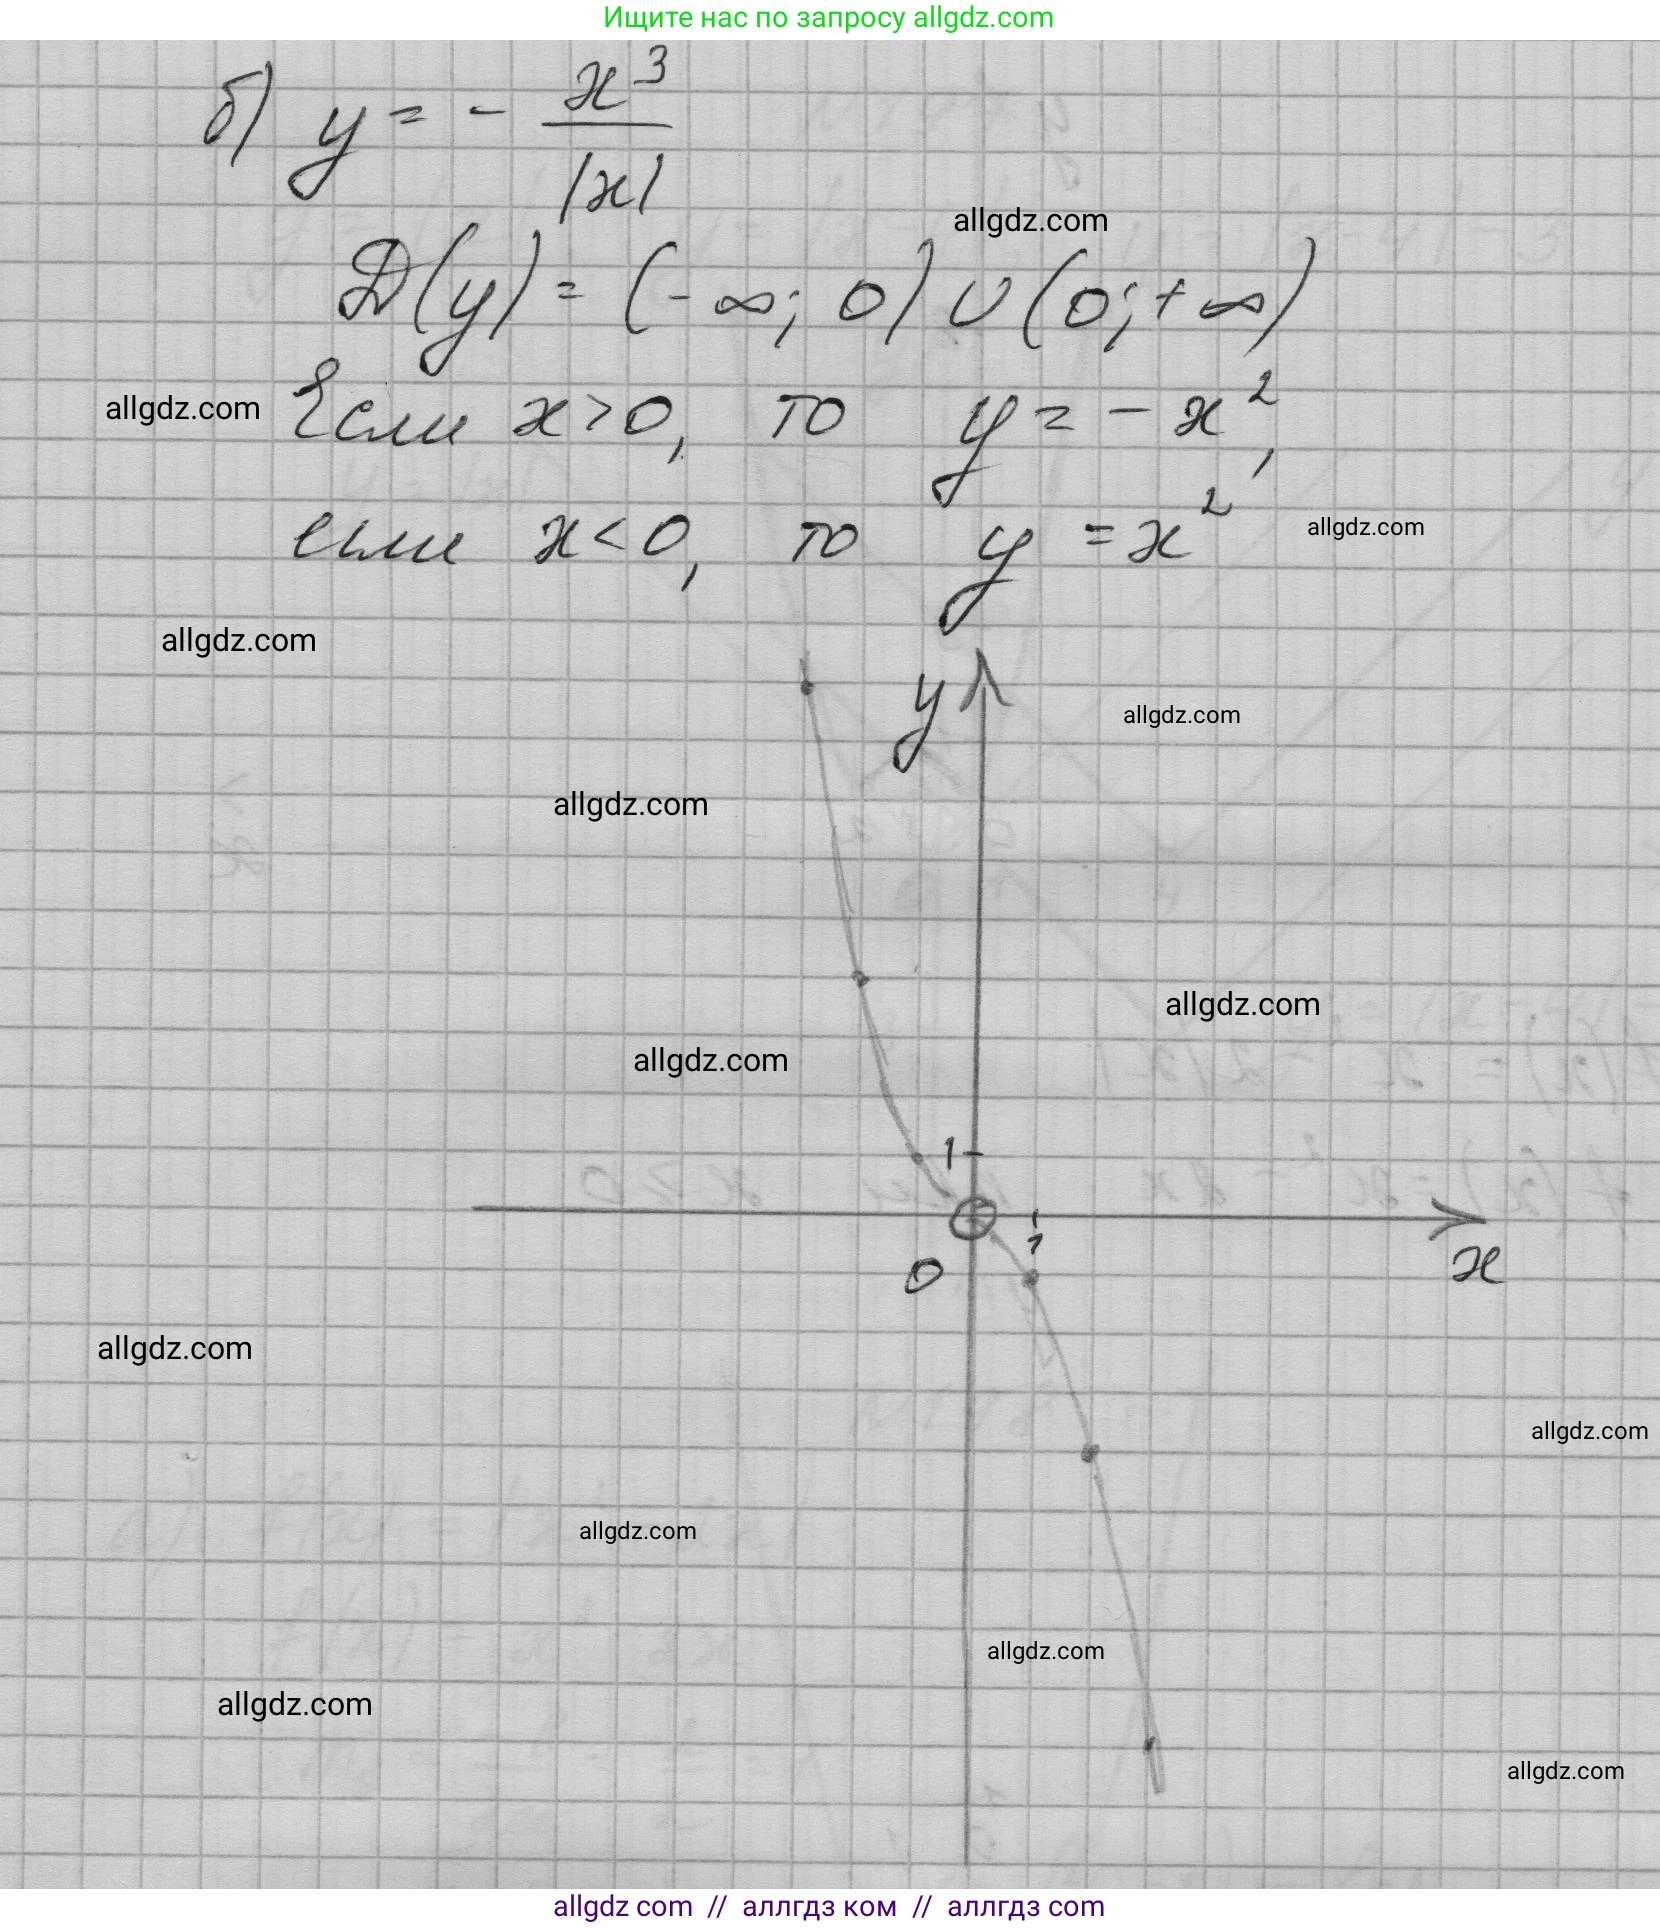 Ищите нас по запросу allgdz.com
б) y = - x³/|x|
allgdz.com
D(y) = (-∞; 0) ∪ (0; +∞)
allgdz.com
Если x>0, то y = - x²,
если x<0, то y = x²
allgdz.com
allgdz.com
y
allgdz.com
allgdz.com
allgdz.com
allgdz.com
1
1
0
x
allgdz.com
allgdz.com
allgdz.com
allgdz.com
allgdz.com
allgdz.com
allgdz com // аллгдз ком // аллгдз com